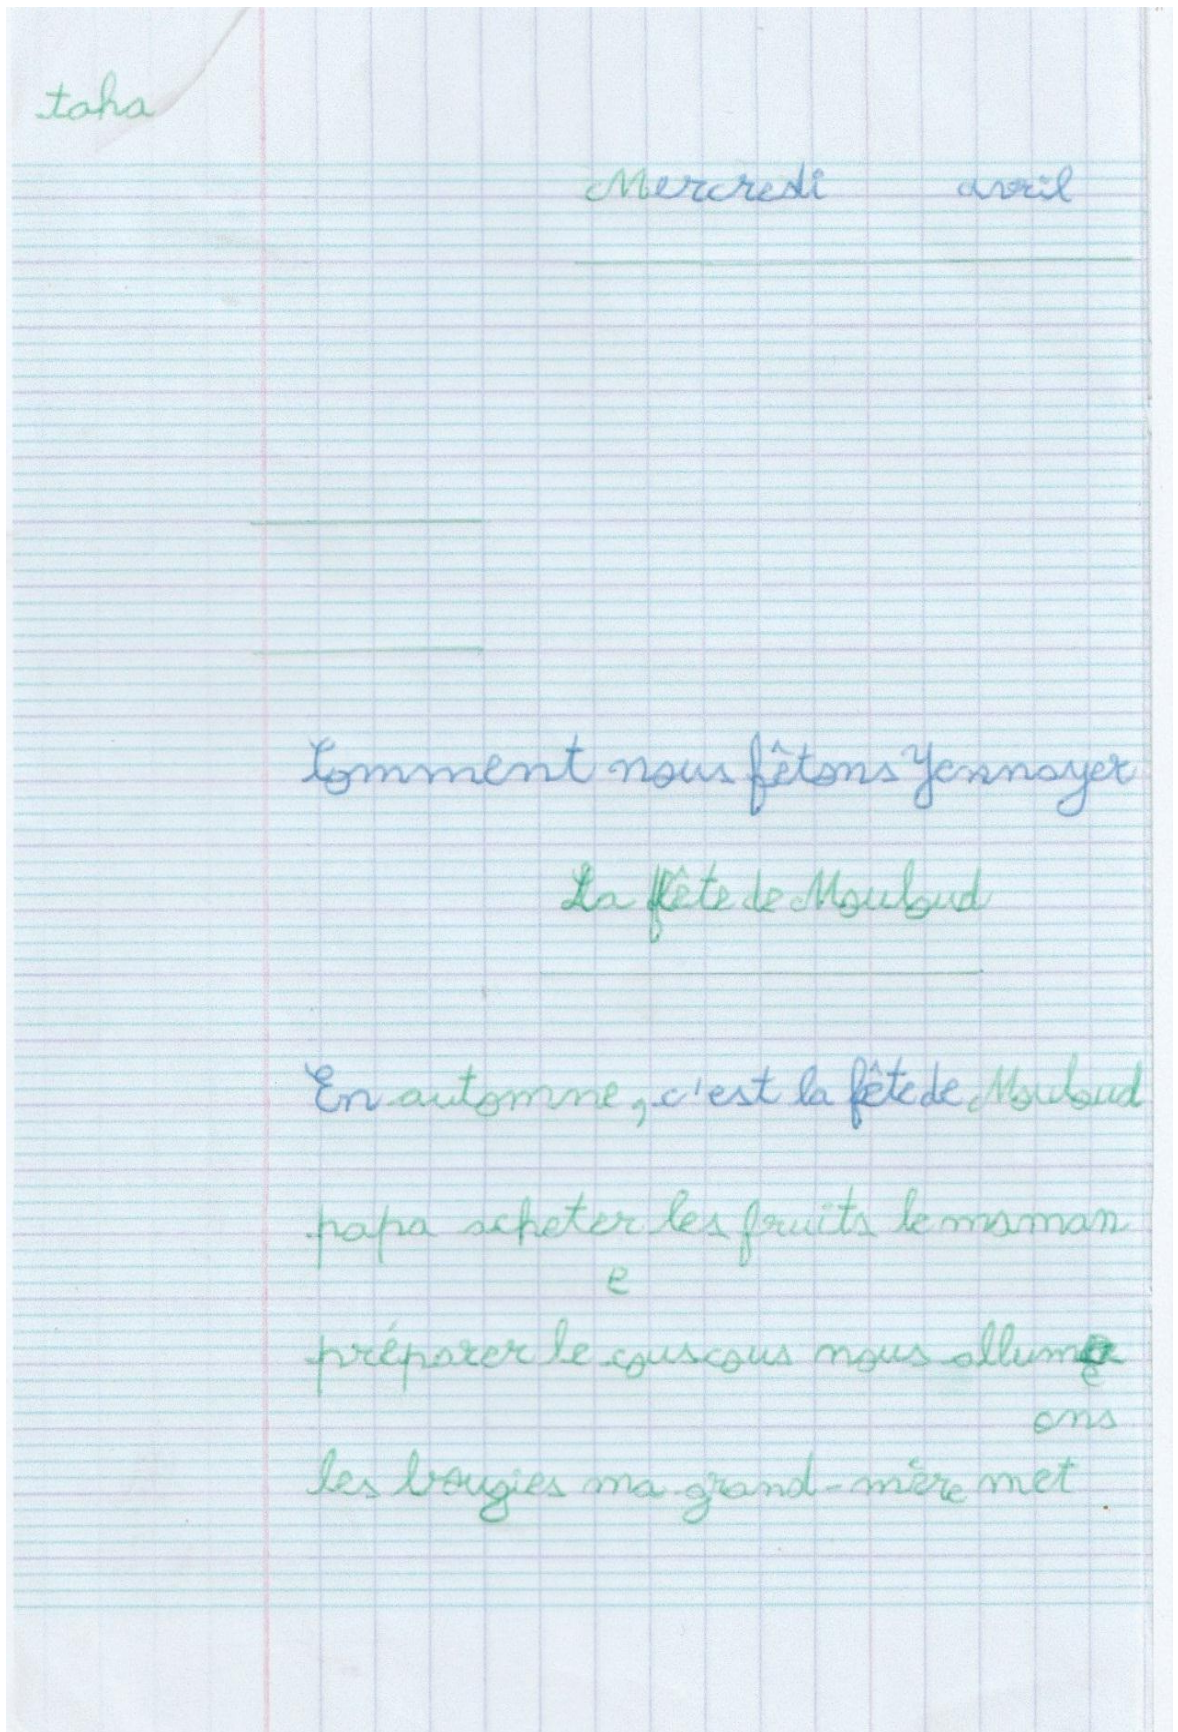 taha
Mercredi avril
Comment nous fêtons Yennayer
La fête de Mouloud
En automne, c'est la fête de Mouloud
papa acheter les fruits le maman
e
préparer le couscous nous allume
ons
les bougies ma grand-mère met